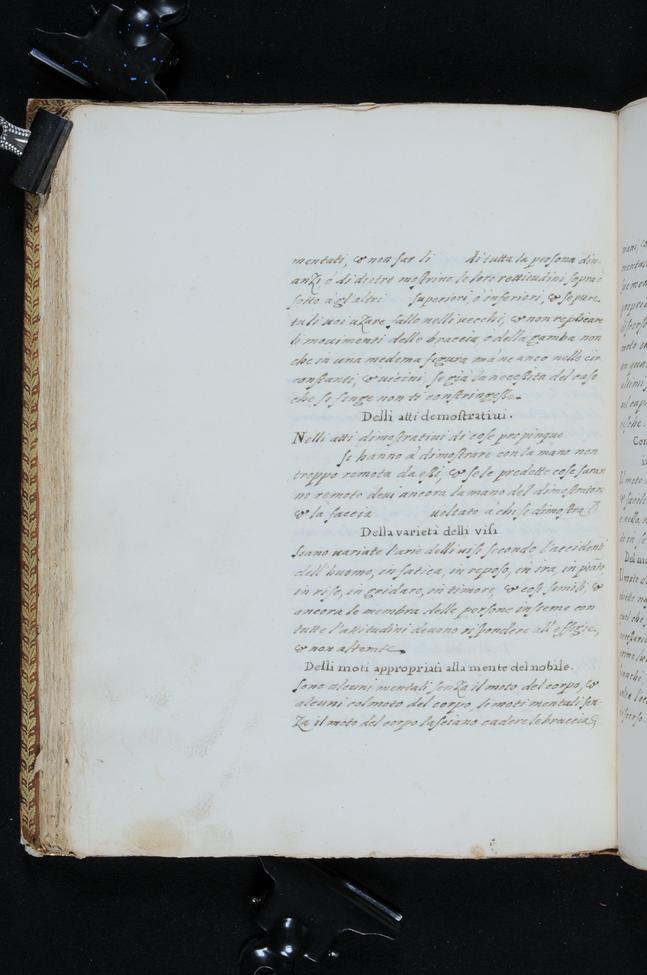 mentati, & non far li di tutta la persona din-
anzi ò di dietro mostrino le loro rettitudini sopra è
sotto à gl'altri superiori, ò inferiori, & se pure
tu li uoi uzare fallo nelli uecchi, & non replicare
li mouimenti delle braccia, ò della gamba non
che in una medema figura, mà ne anco nelle cir-
constanti, & uicini, se già la necessita del caso
che se finge non ti constringesse
Delli atti demostratiui.
Nelli atti dimostratiui di cose propinque
se hanno à dimostrare con la mano non
troppo remota da essi, & se le predette cose saran
no remote deui ancora la mano del dimostratore
& la faccia uoltato à chi se dimostra
Della varietà delli visi
Siano uariate l'arie delli uisi secondo l'accidenti
dell'huomo, in fatica, in reposo, in ira, in pianto
in riso, in gridare, in timore, & cosi simili, &
ancora le membra delle persone insieme con
tutte l'attitudini deuono rispondere all'effigie,
& non
Delli moti appropriati alla mente del nobile.
Sono alcuni mentali senza il moto del corpo, &
alcuni col moto del corpo, li moti mentali sen-
za il moto del corpo lasciano cadere le braccia